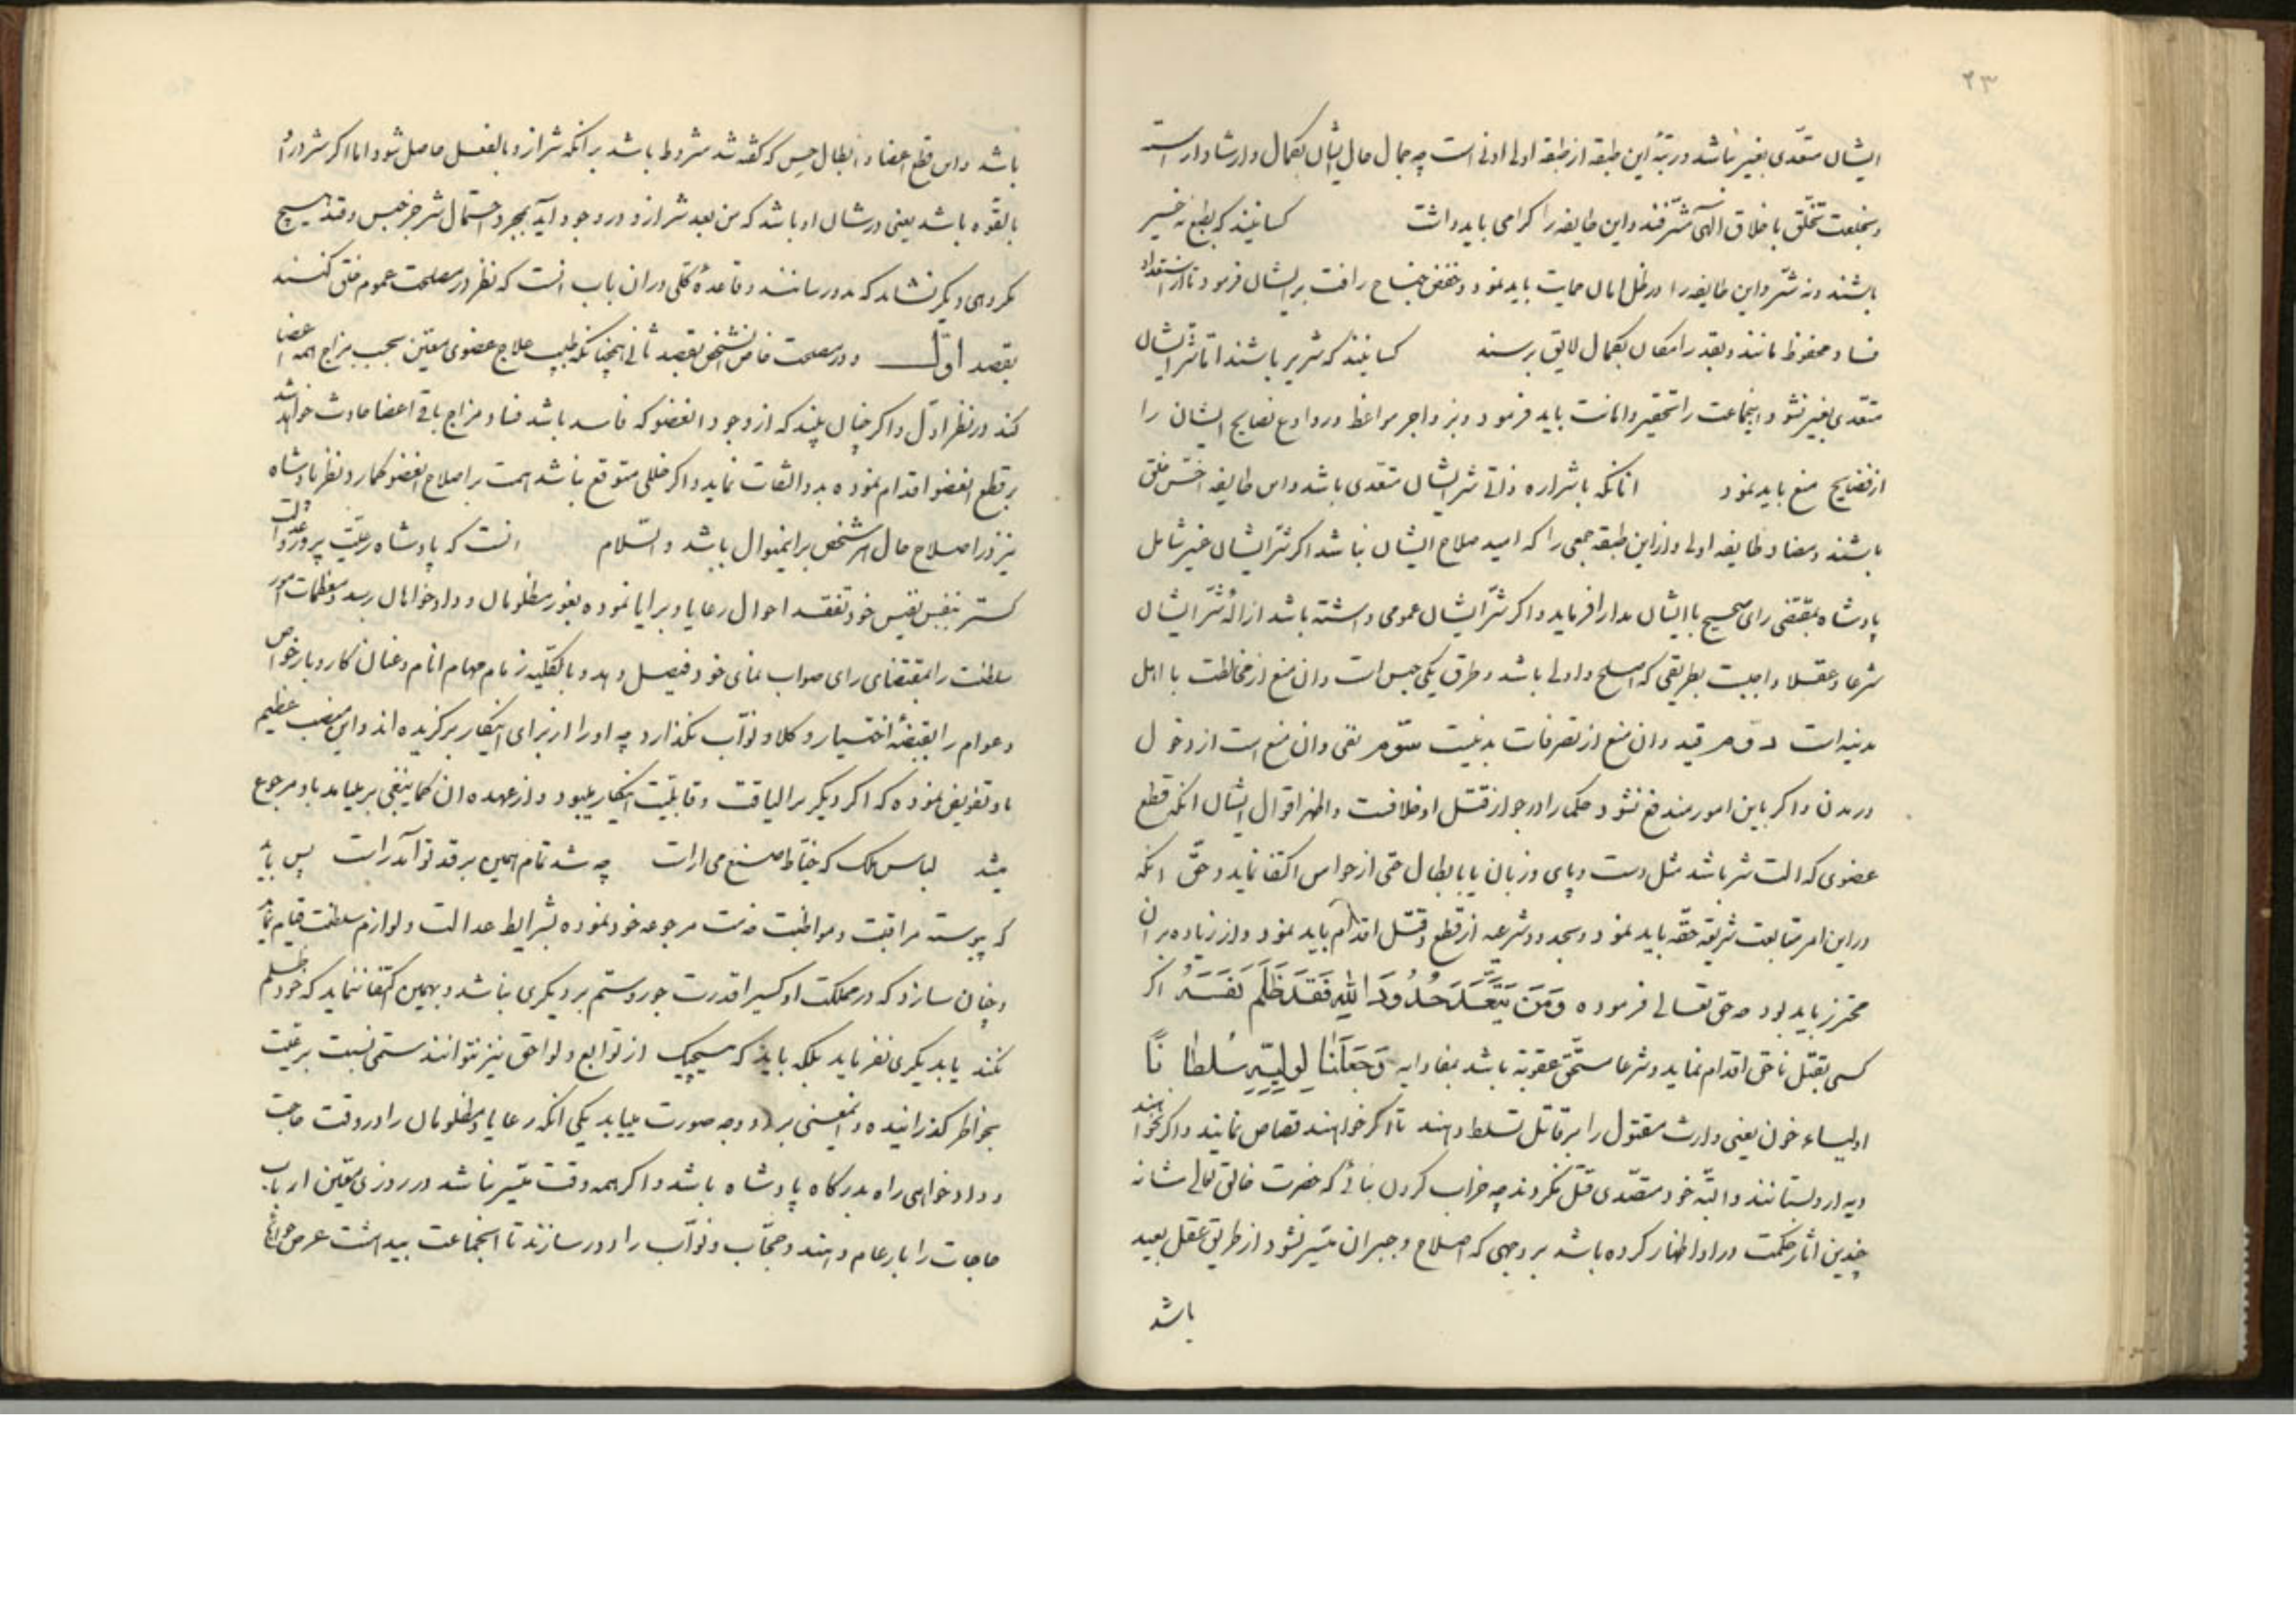 ۲۳
ایشان متعدی بغیر نباشد و رتبهٔ این طبقه از طبقه اولی ادنی است چه جمال حال ایشان بکمال و ارشاد اراسته
و بخلعت تخلق باخلاق الهی مشرفند و این طایفه را کرامی باید داشت کسانیند که بطبع نه خیر
باشند و نه شر و این طایفه را در ظل امان حمایت باید نمود و خفض جناح رافت بر ایشان فرمود تا از استعداد
فساد محفوظ مانند و بقدر امکان بکمال لایق برسند کسانیند که شریر باشند اما شر ایشان
متعدی بغیر نشود اینجماعت را تحقیر و اهانت باید فرمود و بزواجر مواعظ و روادع نصایح ایشان را
از فضایح منع باید نمود انانکه باشراره ذاتی شر ایشان متعدی باشد و این طایفه اخس خلق
باشند و مضاد طایفه اولی و از این طبقه جمعی را که امید صلاح ایشان نباشد اکر شر ایشان غیر شامل
پادشاه بمقتضی رای صحیح با ایشان مدارا فرماید و اکر شر ایشان عمومی داشته باشد ازالهٔ شر ایشان
شرعا و عقلا واجبست بطریقی که اصلح و اولی باشد و طرق یکی حبس است و ان منع از مخالطت با اهل
مدینه است دوم قید و ان منع از تصرفات بدنیست سوم نفی و ان منع است از دخول
در مدن و اکر باین امور مندفع نشود حکما را در جواز قتل او خلافست و اظهر اقوال ایشان انکه قطع
عضوی که الت شر باشد مثل دست و پای و زبان یا بابطال حسی از حواس اکتفا نماید و حق انکه
در این امر متابعت شریعه حقه باید نمود و بحدود شرعیه از قطع و قتل اقدام باید نمود و از زیاده بر ان
محترز باید بود چه حق تعالی فرموده وَمَن يَتَعَدَّ حُدُودَ اللهِ فَقَد ظَلَمَ نَفسَهُ اکر
کسی بقتل ناحق اقدام نماید و شرعا مستحق عقوبة باشد بمفاد ایه وَجَعَلنَا لِوَلِيِّهِ سُلطَانًا
اولیاء خون یعنی وارث مقتول را بر قاتل تسلط دهند تا اکر خواهند قصاص نمایند و اکر نخواهند
دیه از او بستانند و البته خود متصدی قتل نکردند چه خراب کردن بنائی که حضرت خالق تعالی شانه
چندین اثار حکمت در او اظهار کرده باشد بر وجهی که اصلاح و جبران میسر نشود از طریق عقل بعید
باشد
باشد و این قطع اعضا و ابطال حس که کفته شد مشروط باشد بر انکه شر از او بالفعل حاصل شود اما اکر شر در او
بالقوه باشد یعنی در شان او باشد که من بعد شر از او در وجود آید بمجرد احتمال شر جز حبس و قید هیچ
مکروهی دیکر نشاید که بدو رسانند و قاعدهٔ کلی در ان باب انست که نظر در مصلحت عموم خلق کنند
بقصد اول و در مصلحت خاص انشخص بقصد ثانی همچنانکه طبیب علاج عضوی معین بحسب مزاج همه اعضا
کند در نظر اول و اکر چنان بیند که از وجود انعضو که فاسد باشد فساد مزاج باقی اعضا حادث خواهد شد
بر قطع انعضو اقدام نموده بدو التفات ننماید و اکر خللی متوقع نباشد همت بر اصلاح انعضو کمارد و نظر پادشاه
نیز در اصلاح حال هر شخص بر اینمنوال باشد و السلام انست که پادشاه رعیت پرور و عدالت
کستر بنفس نفیس خود تفقد احوال رعایا و برایا نموده بغور مظلومان و دادخواهان رسد و معظمات امور
سلطنت را بمقتضای رای صواب نمای خود فیصل دهد و بالکلیه زمام مهام انام و عنان کار و بار خواص
و عوام را بقبضهٔ اختیار وکلا و نواب نکذارد چه او را از برای اینکار برکزیده اند و این منصب عظیم
باو تفویض نموده که اکر دیکری را لیاقت و قابلیت اینکار میبود و از عهده ان کما ینبغی بر میامد باو مرجوع
میشد لباس ملک که خیاط صنع می اراست چه شد تمام همین بر قد تو آمد راست پس باید
که پیوسته مراقبت و مواظبت خدمت مرجوعه خود نموده بشرایط عدالت و لوازم سلطنت قیام نماید
و چنان سازد که در مملکت او کسیرا قدرت جور و ستم بر دیکری نباشد و بهمین اکتفا ننماید که خود ظلم
نکند یا بدیکری نفرماید بلکه باید که هیچیک از توابع و لواحق نیز نتوانند ستمی نسبت برعیت
بخاطر کذرانیده و اینمعنی بر دو وجه صورت مییابد یکی انکه رعایا و مظلومان را در وقت حاجت
و دادخواهی راه بدرکاه پادشاه باشد و اکر همه وقت میسر نباشد در روزی معین ارباب
حاجات را بار عام دهند و حجاب و نواب را دور سازند تا اینجماعت بیدهشت عرض